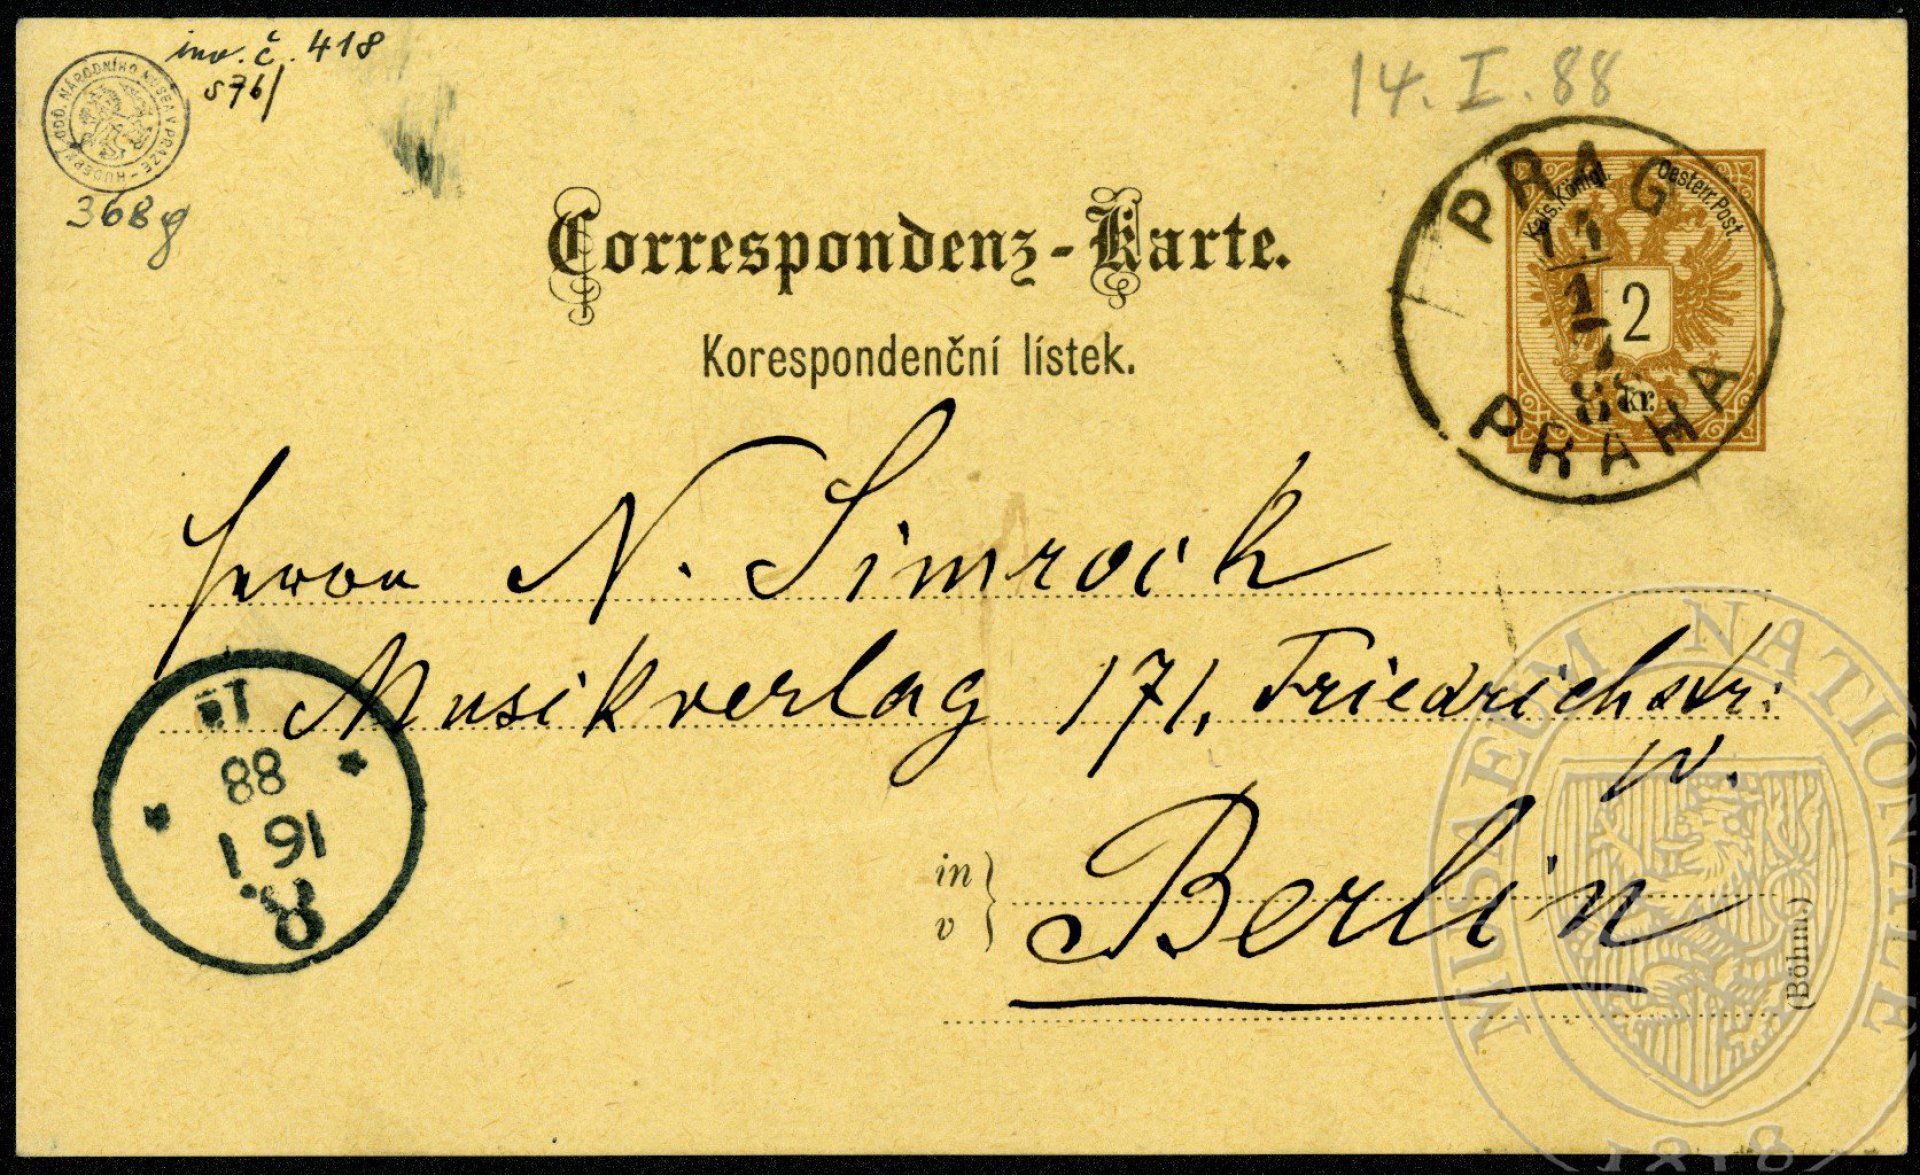 inv. č. 418
s76/
HUDEBNÍ ODD. NÁRODNÍHO MUSEA V PRAZE
368g
14. I. 88
Correspondenz-Karte.
Korespondenční lístek.
Kais. Königl. Oesterr. Post.
2
kr.
PRAG
14
1
88
PRAHA
Herrn N. Simrock
Musikverlag 171, Friedrichstr:
W.
in
v
Berlin
(Böhm.)
8.
16 1
88
MUSAEUM NATIONALE
1818